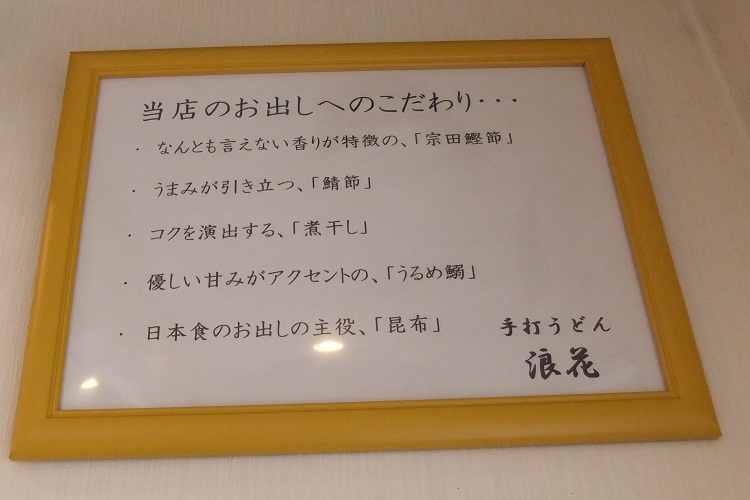 当店のお出しへのこだわり・・・
・ なんとも言えない香りが特徴の、「宗田鰹節」
・ うまみが引き立つ、「鯖節」
・ コクを演出する、「煮干し」
・ 優しい甘みがアクセントの、「うるめ鰯」
・ 日本食のお出しの主役、「昆布」
手打うどん
浪花